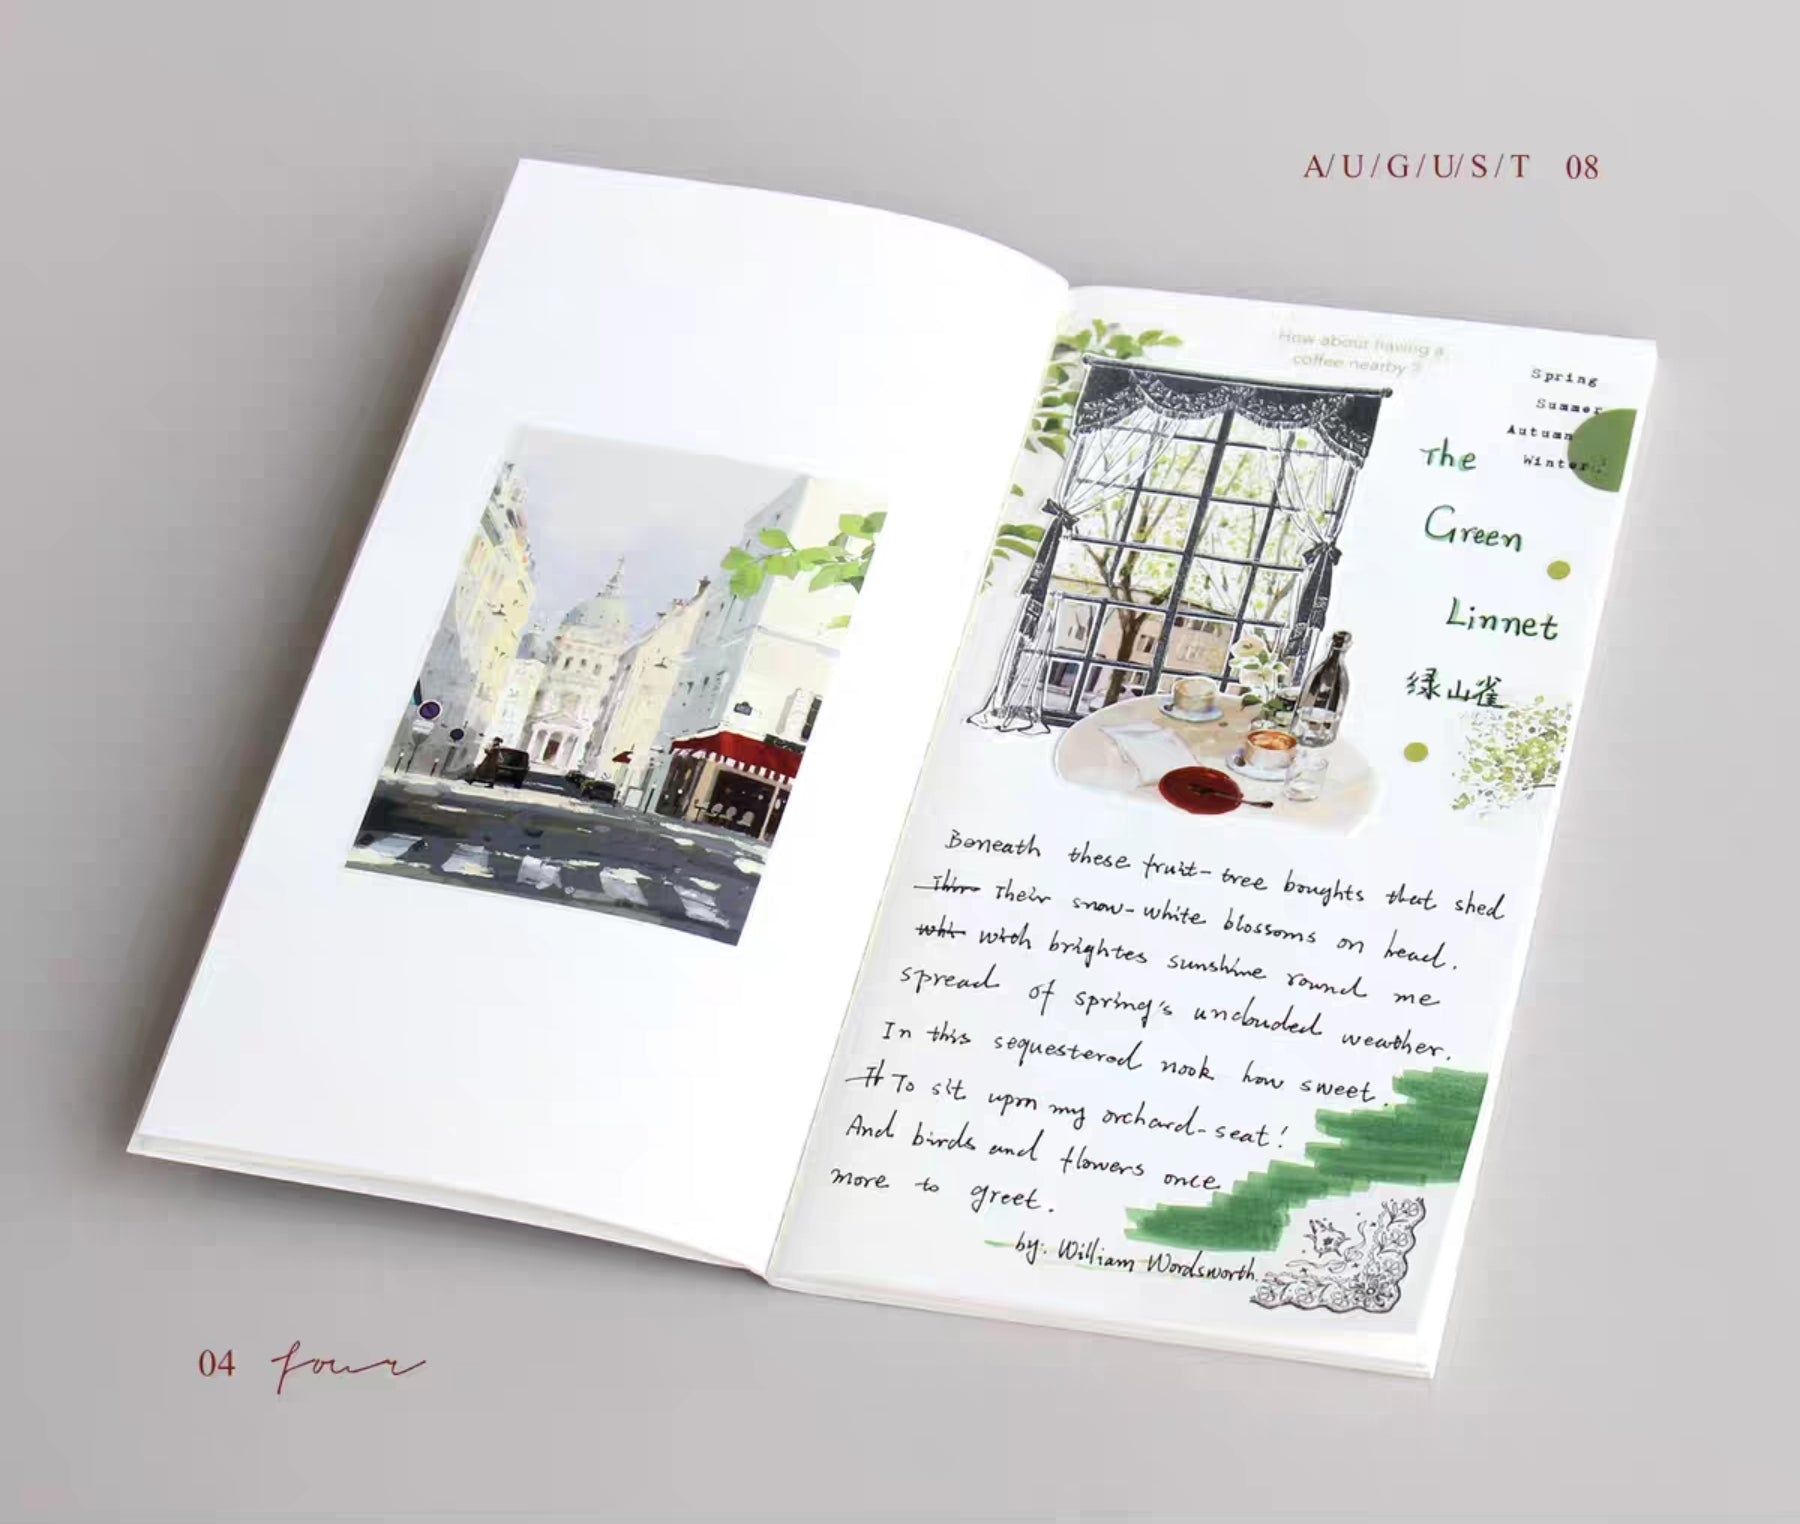 A/U/G/U/S/T 08
How about having a
coffee nearby ?
Spring
Summer
Autumn
Winter
The
Green
Linnet
绿山雀
Beneath these fruit-tree boughts that shed
Thir Their snow-white blossoms on head.
whi with brightes sunshine round me
spread of spring's unclouded weather.
In this sequestered nook how sweet.
It To sit upon my orchard-seat!
And birds and flowers once
more to greet.
by: William Wordsworth.
04 four